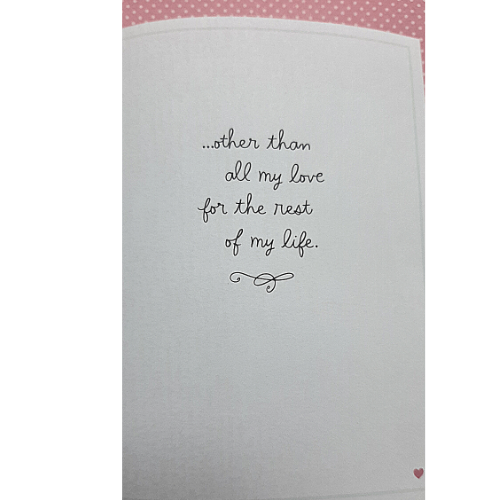 ...other than
all my love
for the rest
of my life.